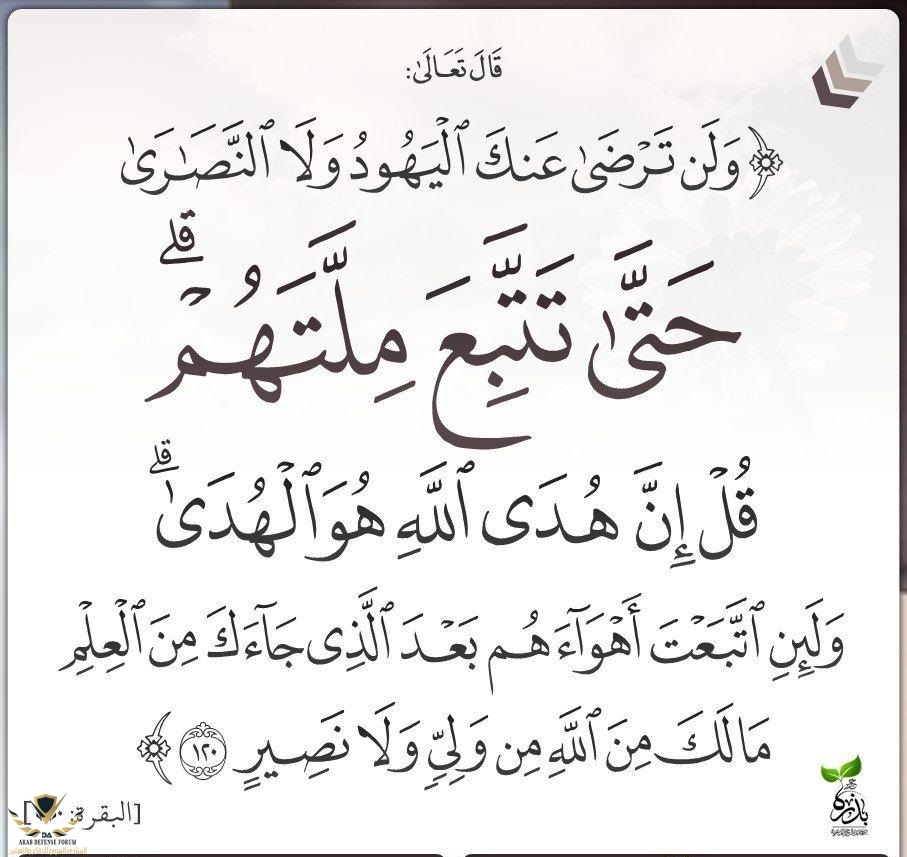 قَالَ تَعَالَىٰ:
﴿وَلَن تَرْضَىٰ عَنكَ ٱلْيَهُودُ وَلَا ٱلنَّصَٰرَىٰ
حَتَّىٰ تَتَّبِعَ مِلَّتَهُمْ ۗ
قُلْ إِنَّ هُدَى ٱللَّهِ هُوَ ٱلْهُدَىٰ ۗ
وَلَئِنِ ٱتَّبَعْتَ أَهْوَآءَهُم بَعْدَ ٱلَّذِى جَآءَكَ مِنَ ٱلْعِلْمِ
مَا لَكَ مِنَ ٱللَّهِ مِن وَلِىٍّ وَلَا نَصِيرٍ ١٢٠﴾
[البقرة:
بذرة
ARAB DEFENSE FORUM
المنتدى العربي للدفاع والتسليح